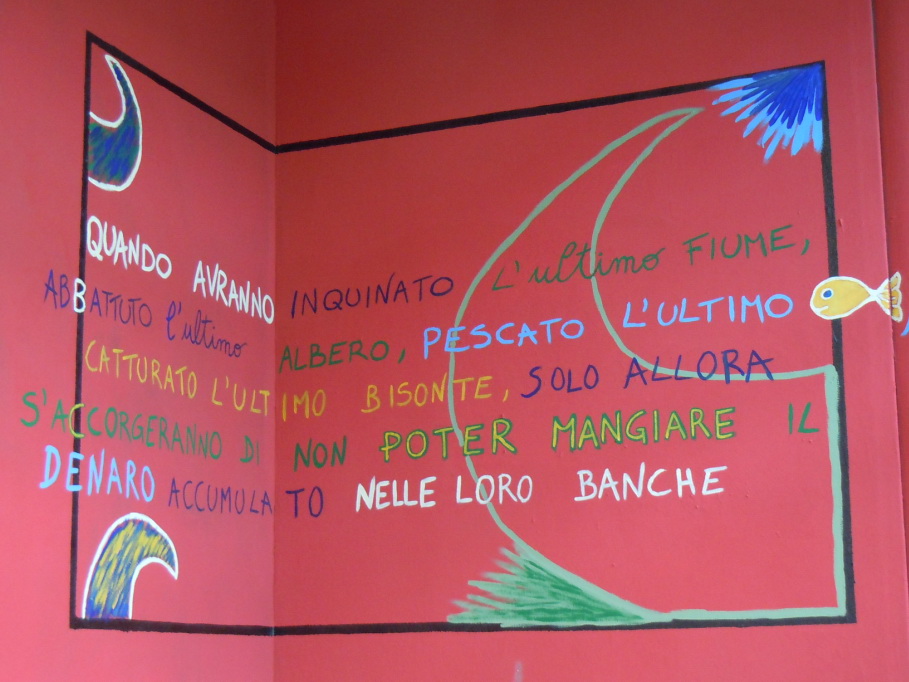 QUANDO AVRANNO INQUINATO L'ultimo FIUME,
ABBATTUTO l'ultimo ALBERO, PESCATO L'ULTIMO ,
CATTURATO L'ULTIMO BISONTE, SOLO ALLORA
S'ACCORGERANNO DI NON POTER MANGIARE IL
DENARO ACCUMULATO NELLE LORO BANCHE